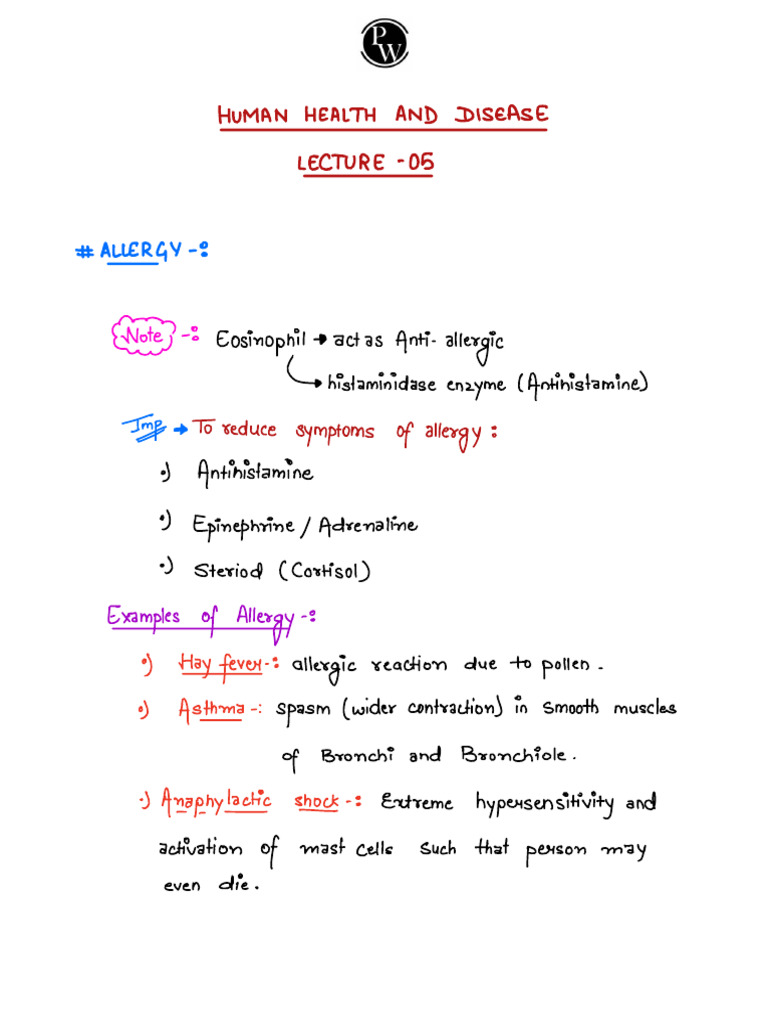 PW
HUMAN HEALTH AND DISEASE
LECTURE -05
# ALLERGY -:
Note -: Eosinophil → act as Anti- allergic
→ histaminidase enzyme (Antihistamine)
Imp → To reduce symptoms of allergy :
•) Antihistamine
•) Epinephrine / Adrenaline
•) Steriod (Cortisol)
Examples of Allergy -:
•) Hay fever -: allergic reaction due to pollen .
•) Asthma -: spasm (wider contraction) in smooth muscles
of Bronchi and Bronchiole .
•) Anaphylactic shock -: Extreme hypersensitivity and
activation of mast cells such that person may
even die .